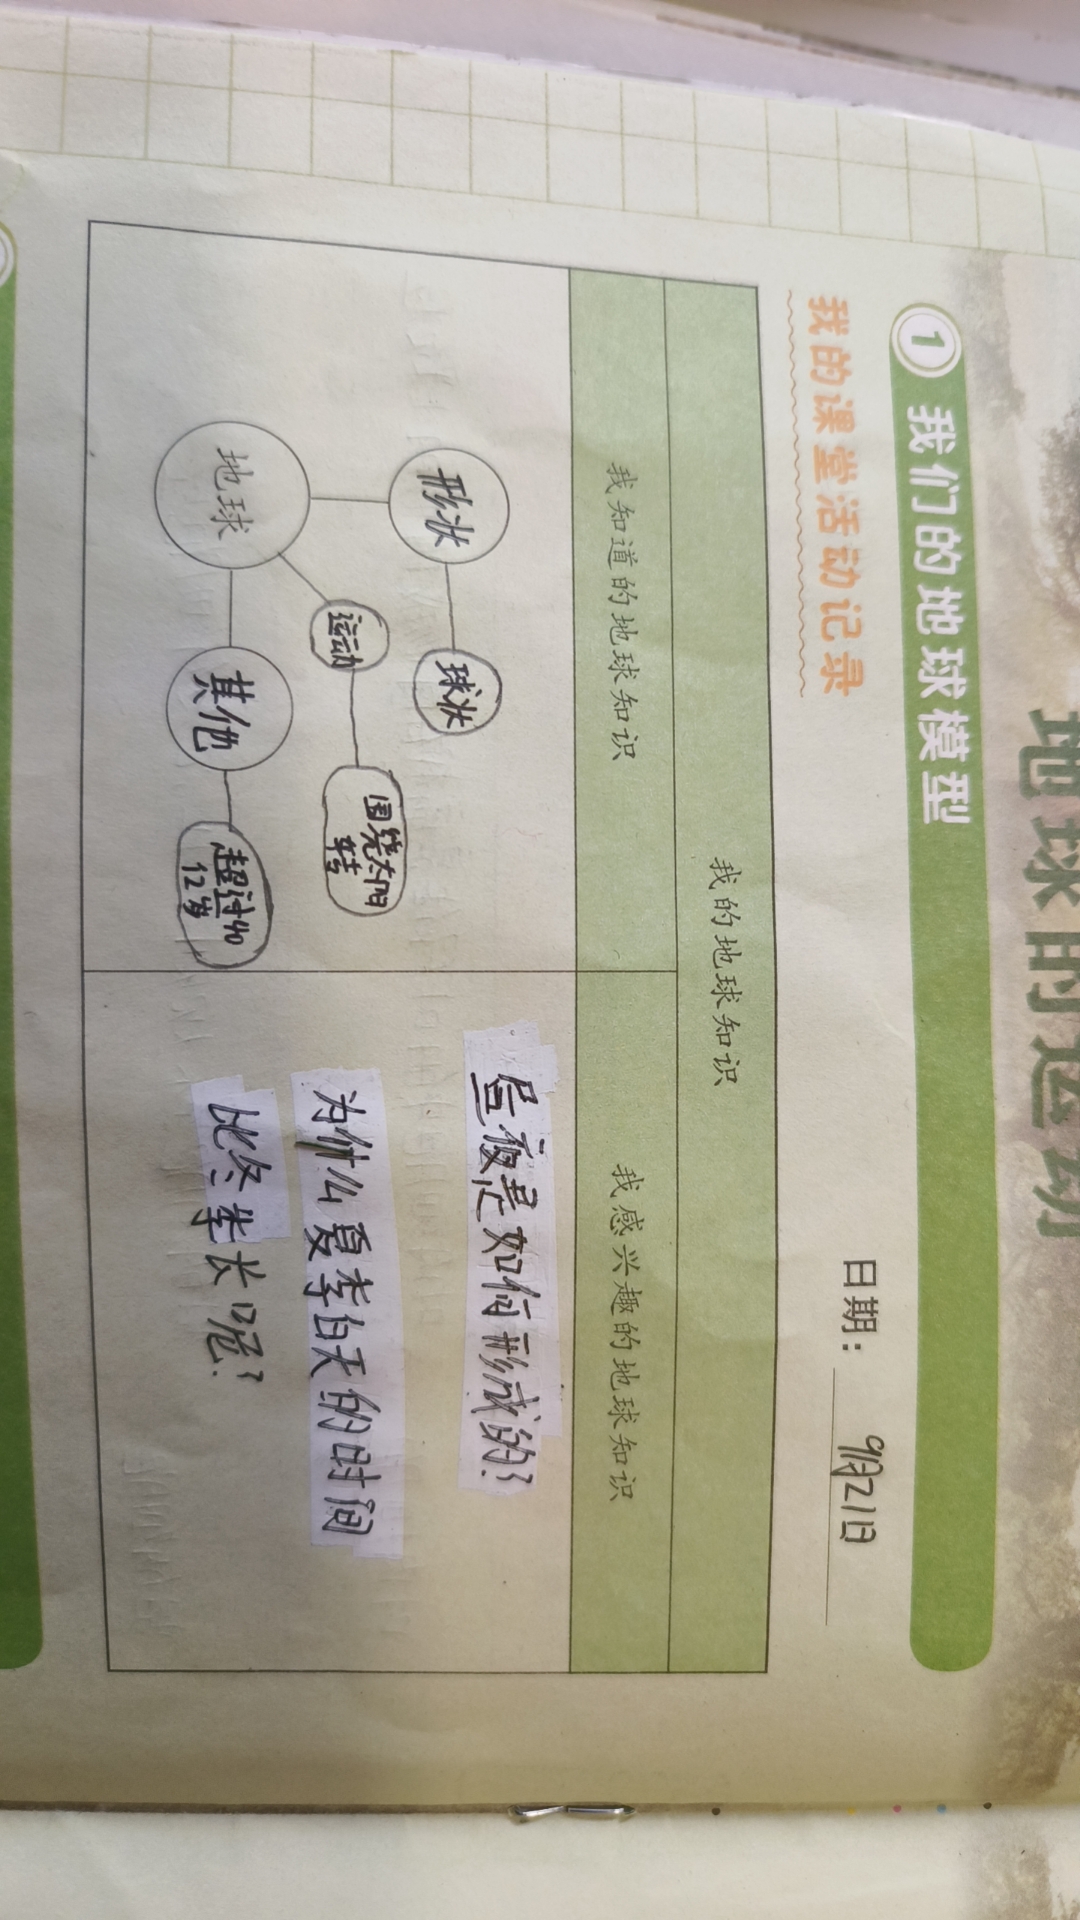 地球的运动
1 我们的地球模型
我的课堂活动记录
日期：9月21日
我的地球知识
我知道的地球知识
我感兴趣的地球知识
形状
球状
运动
围绕太阳
转
地球
其他
超过40
12岁
昼夜是如何形成的?
为什么夏季白天的时间
比冬季长呢?